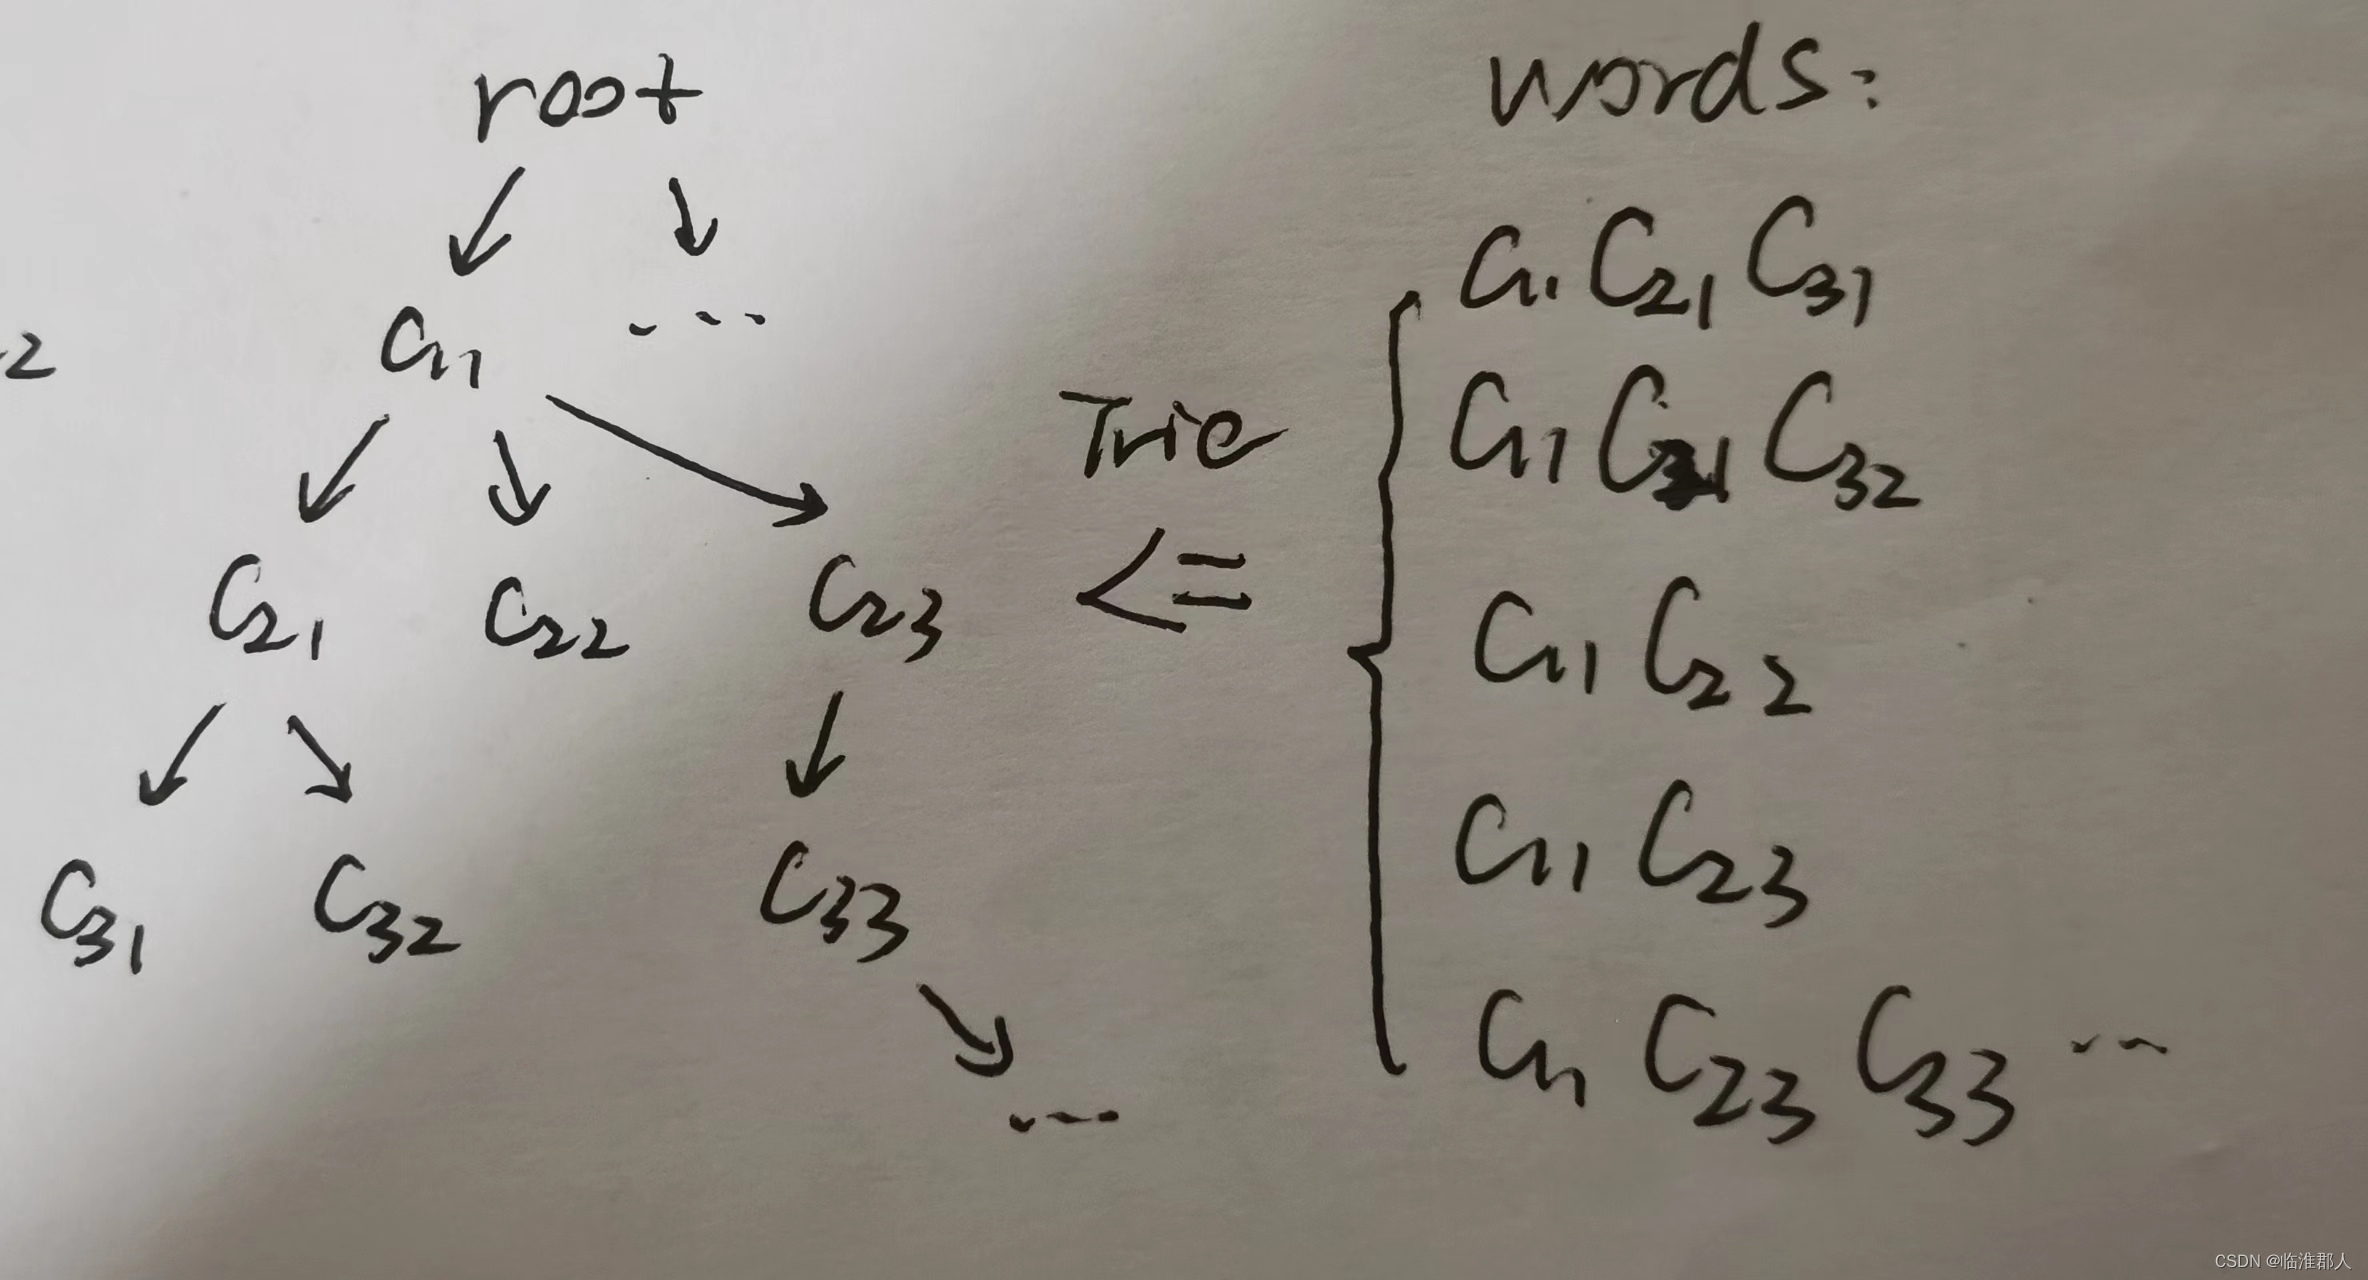 root
c11 ...
c21 c22 c23
c31 c32 c33
...
Trie
<=
words:
c11 c21 c31
c11 c21 c32
c11 c22
c11 c23
c11 c23 c33 ...
2
CSDN @临淮郡人